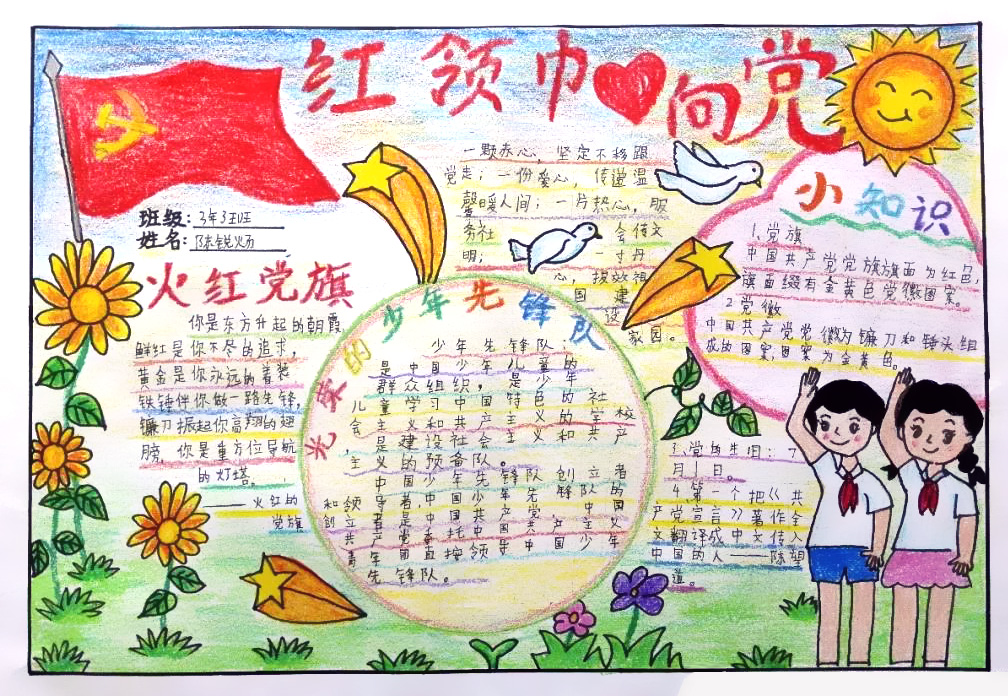 红领巾向党
班级: 3年3班
姓名: 陈锐炀
火红党旗
你是东方升起的朝霞,
鲜红是你不尽的追求,
黄金是你永远的着装
铁锤伴你做一路先锋,
镰刀振起你高翔的翅
膀, 你是重方位导航
的灯塔。
——火红的
党旗
一颗赤心, 坚定不移跟
党走; 一份爱心, 传递温
馨暖人间; 一片热心, 服
务社 会传文
明; 一寸丹
心, 报效祖
国 建
设
家园。
光荣的少年先锋队
少年先锋队:
是中国少年儿童的
群众组织, 是少年
儿童学习中国特色的社
会主义和共产主义的学校
,是建设社会主义和共产
主义的预备队。
中国少年先锋队创立者
和领导者是中国共产党,中国
共产党委托
先锋队。
小知识
1.党旗
中国共产党党旗旗面为红色,
旗面缀有金黄色党徽图案。
2 党徽
中国共产党党徽为镰刀和锤头组
成的图案,图案为金黄色。
3.党的生日: 7
月1日。
4.第一个把《共
产党宣言》著作全
文翻译成中文传入
中国的人——陈望
道。